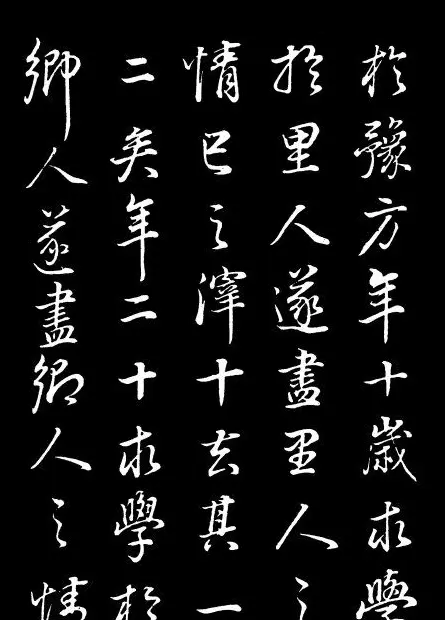 於豫方年十歲求學
於里人遂盡里人之
情已之滓十去其一
二矣年二十求學於
鄉人遂盡鄉人之情